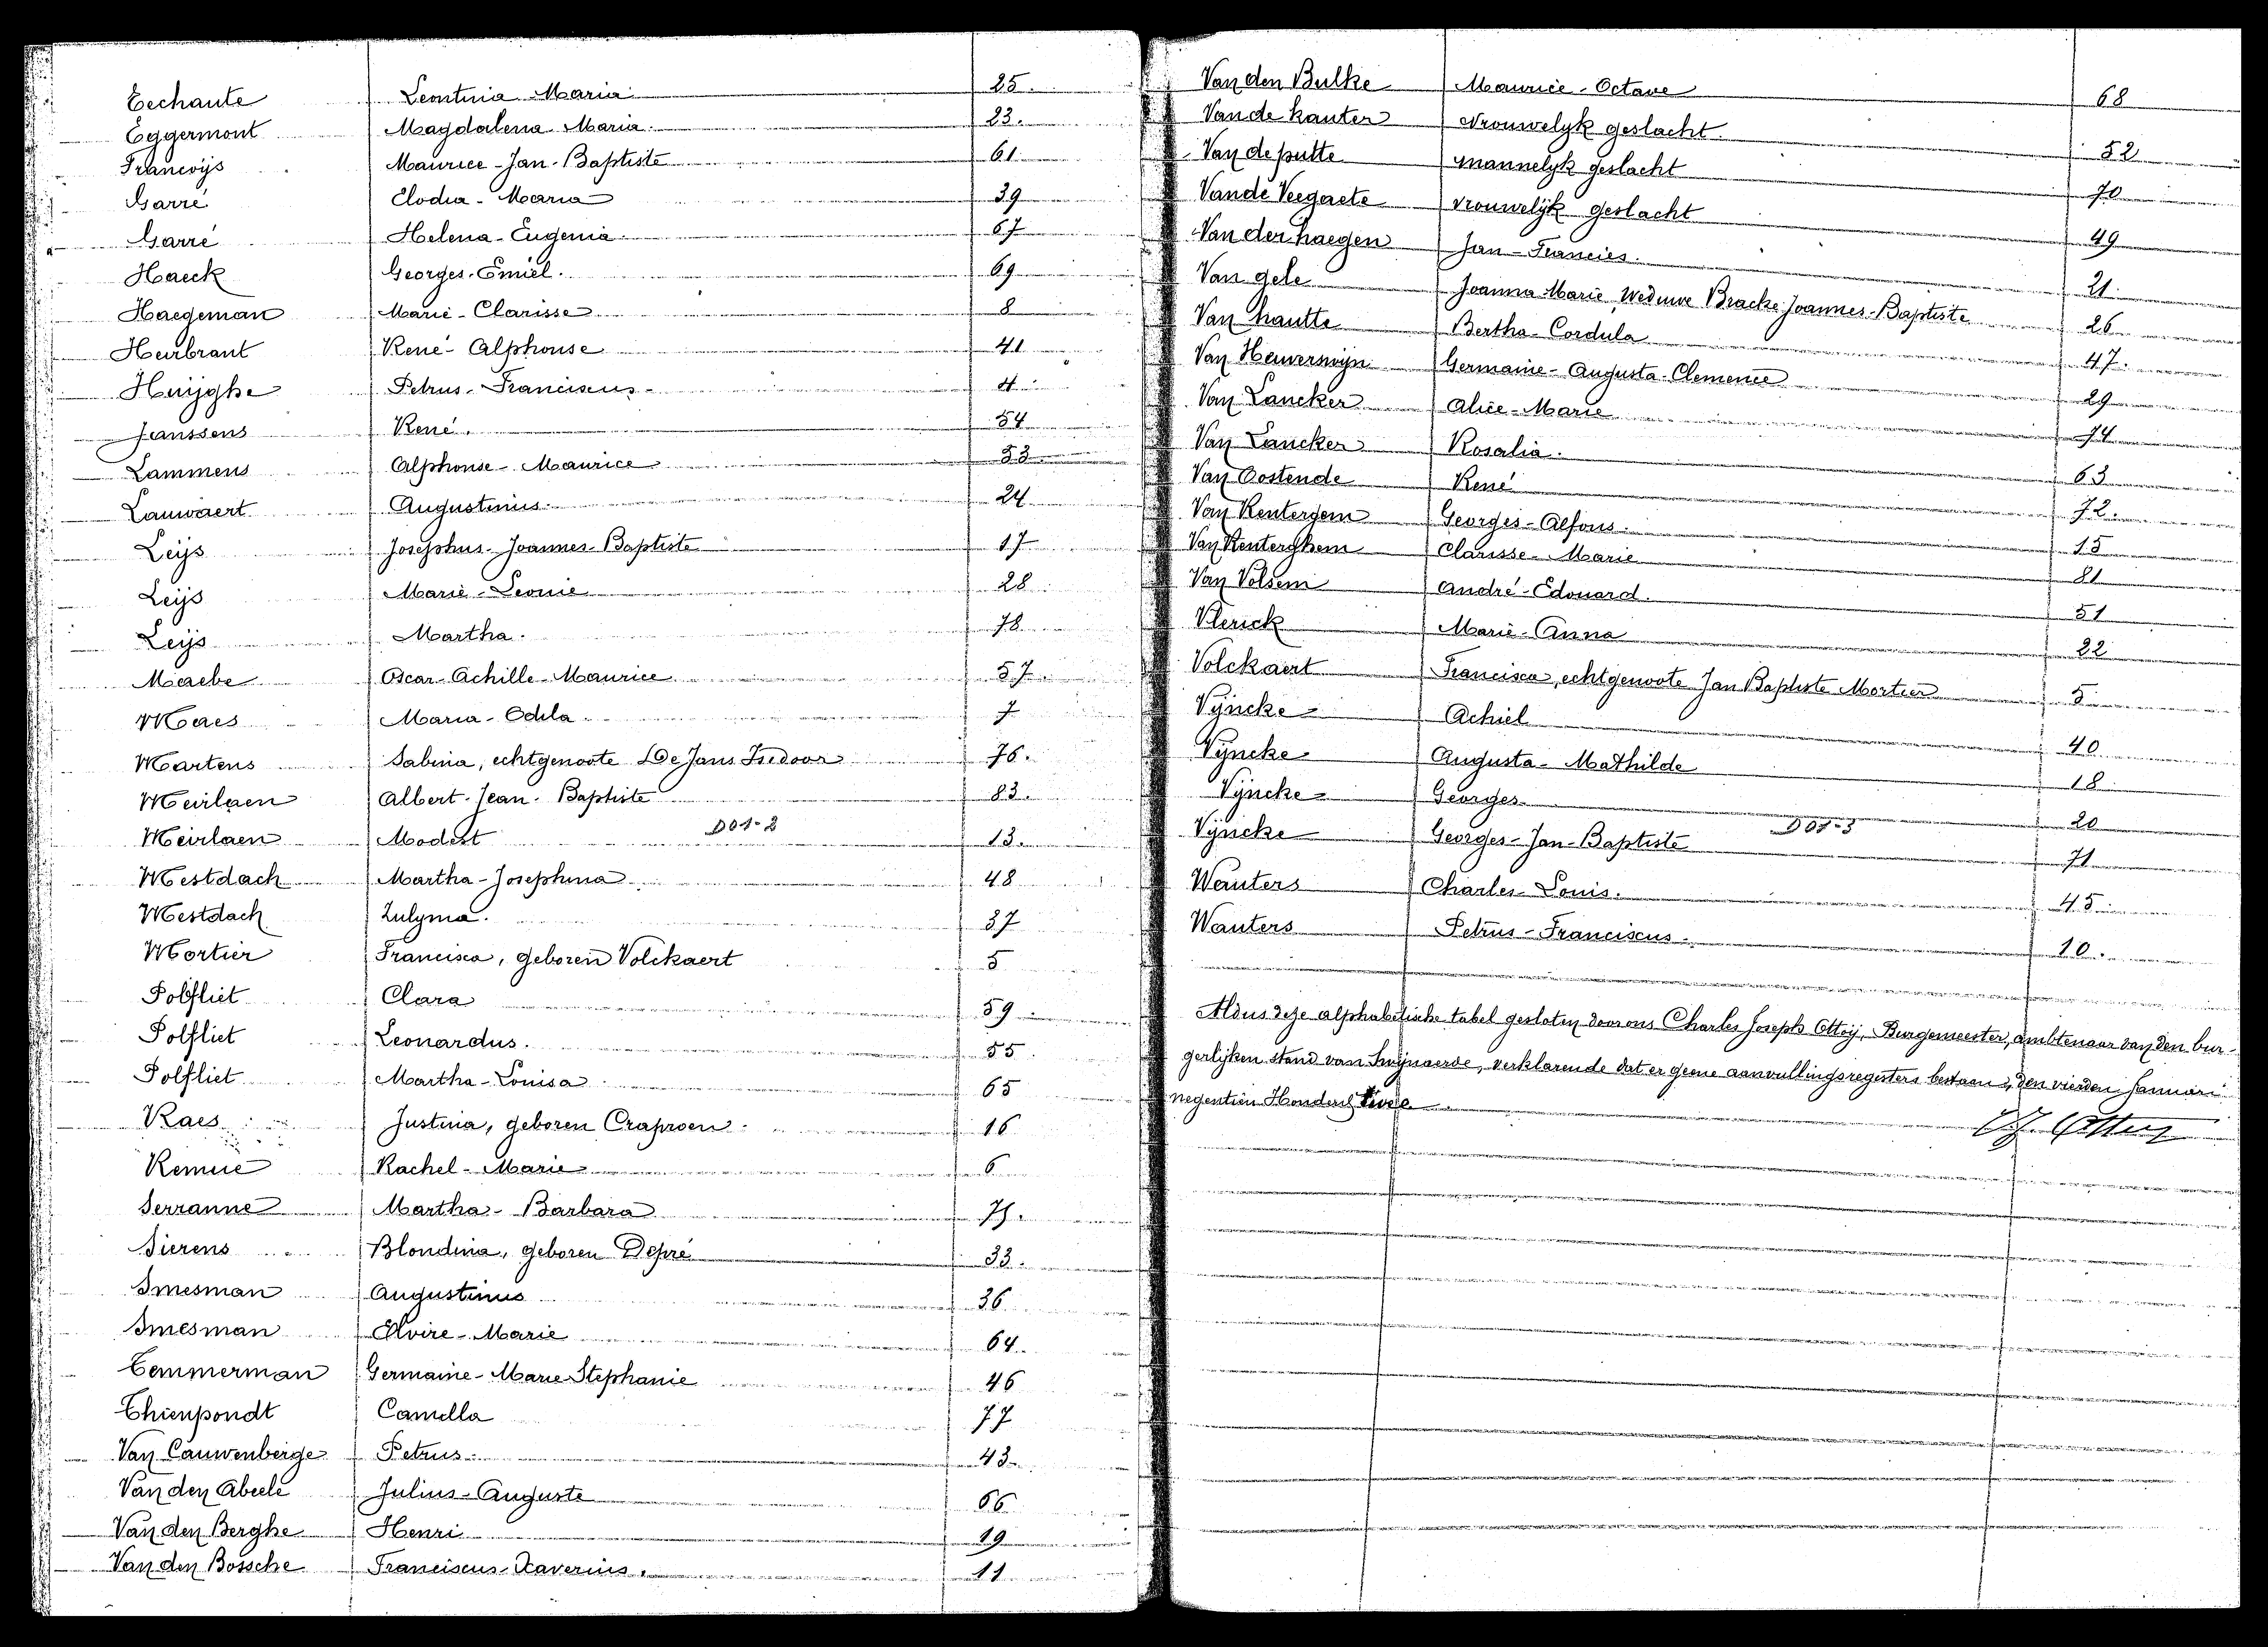 Eechaute Leontina Maria 25.
Eggermont Magdalena Maria. 23.
Francoijs Maurice-Jan-Baptiste 61
Garré Elodia-Maria 39
Garré Helena-Eugenia. 67
Haeck Georges-Emiel. 69
Haegeman Marie-Clarisse 8
Heirbrant René-Alphonse 41
Huijghe Petrus-Franciscus 4
Janssens René. 54
Lammens Alphonse-Maurice 53
Lauwaert Augustinus. 24
Leijs Josephus-Joannes-Baptiste 17
Leijs Marie-Leonie 28
Leijs Martha. 78
Maebe Oscar-Achille-Maurice 57.
Maes Maria-Odila. 7
Martens Sabina, echtgenoote De Jans Isidoor 76.
Meirlaen Albert-Jean-Baptiste 83.
Meirlaen Modest D01-2 13.
Mestdach Martha-Josephina 48
Mestdach Zulyma. 37
Mortier Francisca, geboren Volckaert 5
Polfliet Clara 59
Polfliet Leonardus. 55
Polfliet Martha-Louisa 65
Raes Justina, geboren Craproen. 16
Remue Rachel-Marie 6
Serranne Martha-Barbara 75.
Sierens Blondina, geboren Depré 33.
Smesman Augustinus 36
Smesman Elvire-Marie 64.
Temmerman Germaine-Marie-Stephanie 46
Thienpondt Camilla 77
Van Cauwenberge Petrus. 43
Van den Abeele Julius-Auguste 66
Van den Berghe Henri 19
Van den Bossche Franciscus-Xaverius. 11
Van den Bulke Maurice-Octave 68
Van de kanter Vrouwelyk geslacht. 52
Van de putte mannelyk geslacht 70
Van de Veegaete vrouwelijk geslacht 49
Van der haegen Jan-Francies. 21.
Van gele Joanna Marie, Weduwe Bracke Joannes-Baptiste 26
Van hautte Bertha-Cordula 47.
Van Heuverswijn Germaine-Augusta-Clemence 29
Van Lancker Alice-Marie 74
Van Lancker Rosalia. 63
Van Oostende René 72.
Van Rentergem Georges-Alfons. 15
Van Renterghem Clarisse-Marie 81
Van Volsem André-Edouard. 51
Vlerick Marie-Anna 22
Volckaert Francisca, echtgenoote Jan Baptiste Mortier 5
Vijncke Achiel 40
Vijncke Augusta-Mathilde 18
Vijncke Georges 20
Vijncke Georges-Jan-Baptiste D01-3 71
Wauters Charles-Louis. 45
Wauters Petrus-Franciscus. 10.
Aldus deze alphabetische tabel gesloten door ons Charles Joseph Ottoij, Burgemeester, ambtenaar van den bur-
gerlijken stand van Swijnaerde, verklarende dat er geene aanvullingsregisters bestaan, den vierden Januari
negentien Honderd twee.